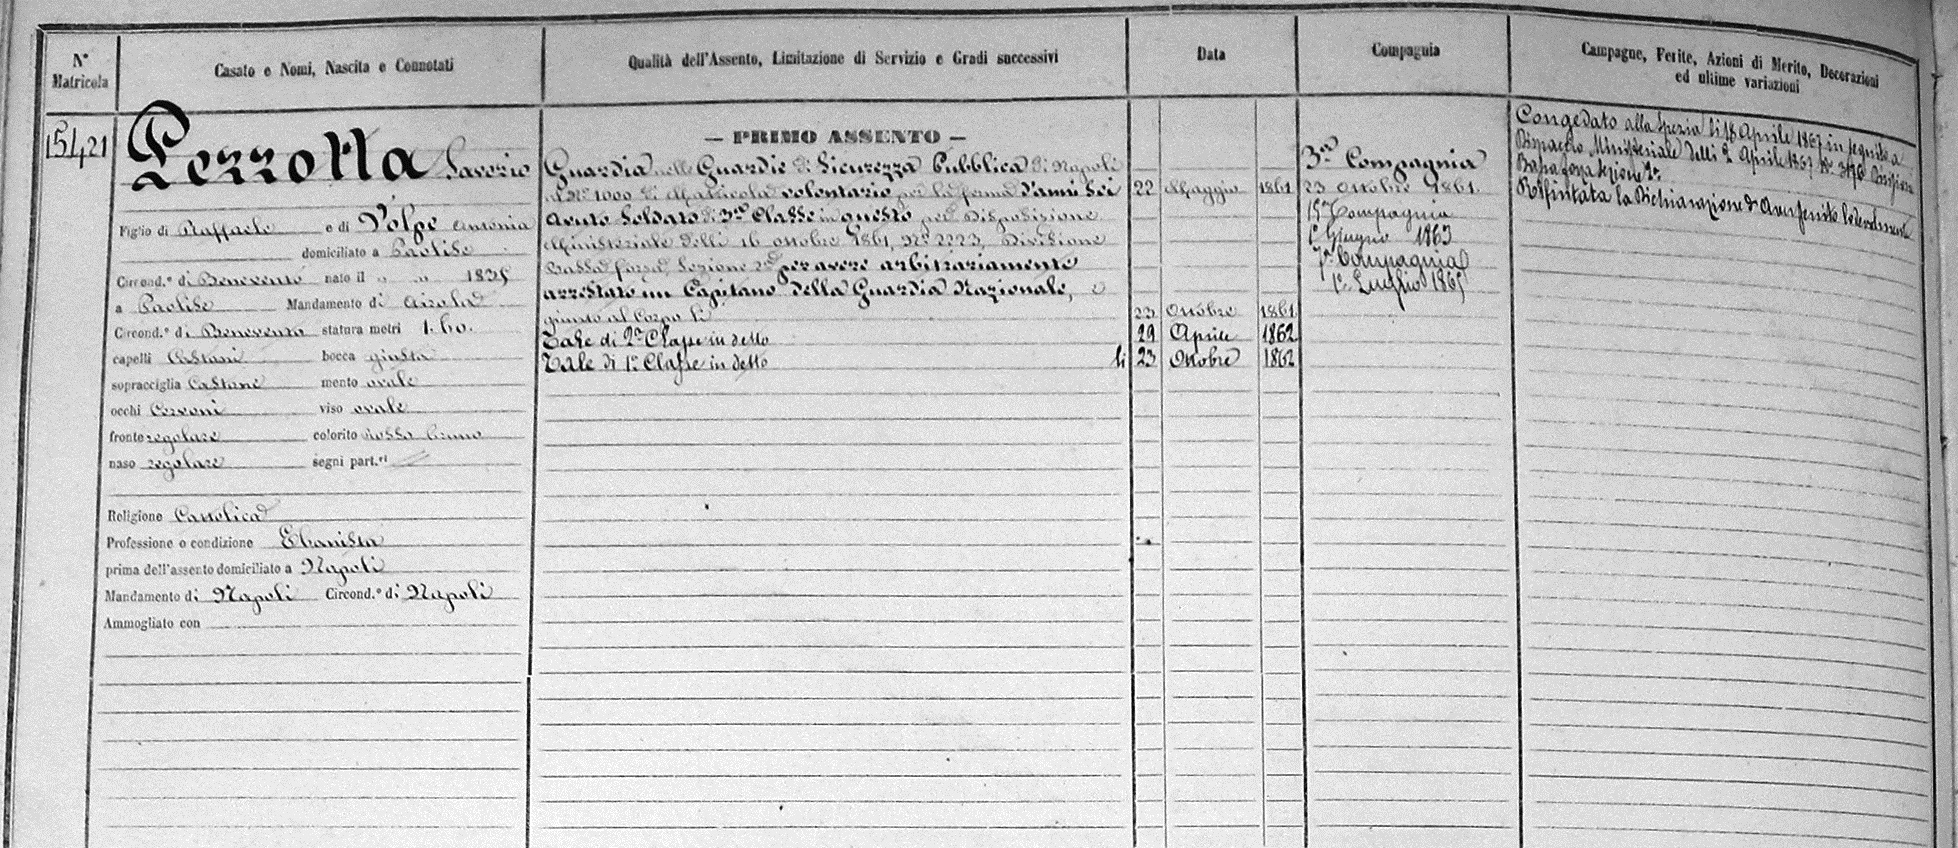 N° Matricola
Casato e Nomi, Nascita e Connotati
Qualità dell'Assento, Limitazione di Servizio e Gradi successivi
Data
Compagnia
Campagne, Ferite, Azioni di Merito, Decorazioni
ed ultime variazioni
15421
Pezzotta Saverio
Figlio di Raffaele e di Volpe Antonia
domiciliato a Paolise
Circond.° di Benevento nato il " " 1835
a Paolise Mandamento di Airola
Circond.° di Benevento statura metri 1.60.
capelli Castani bocca giusta
sopracciglia Castane mento ovale
occhi Cervoni viso ovale
fronte regolare colorito rosso bruno
naso regolare segni part.ri
Religione Cattolica
Professione o condizione Ebanista
prima dell'assento domiciliato a Napoli
Mandamento di Napoli Circond.° di Napoli
Ammogliato con
— PRIMO ASSENTO —
Guardia nelle Guardie di Sicurezza Pubblica di Napoli
al N° 1000 di Matricola volontario per la ferma d'anni Sei 22 Maggio 1861
Avuto Soldato di 3a Classe in questo per Disposizione
Ministeriale delli 16 ottobre 1861, N° 2223, Divisione
Bassa forza, Sezione 2a per avere arbitrariamente
arrestato un Capitano della Guardia Nazionale, e
giunto al Corpo li 23 Ottobre 1861
Tale di 2a Classe in detto 29 Aprile 1862
Tale di 1a Classe in detto li 23 Ottobre 1862
3a Compagnia
23 Ottobre 1861
15a Compagnia
1° Giugno 1863
7a Compagnia
1° Luglio 1865
Congedato alla Spezia li 18 Aprile 1867 in seguito a
Dispaccio Ministeriale delli 2 Aprile 1867 N° 3170 Divisione
Bassa forza Sezione 2a
Rifiutata la Dichiarazione d'aver servito